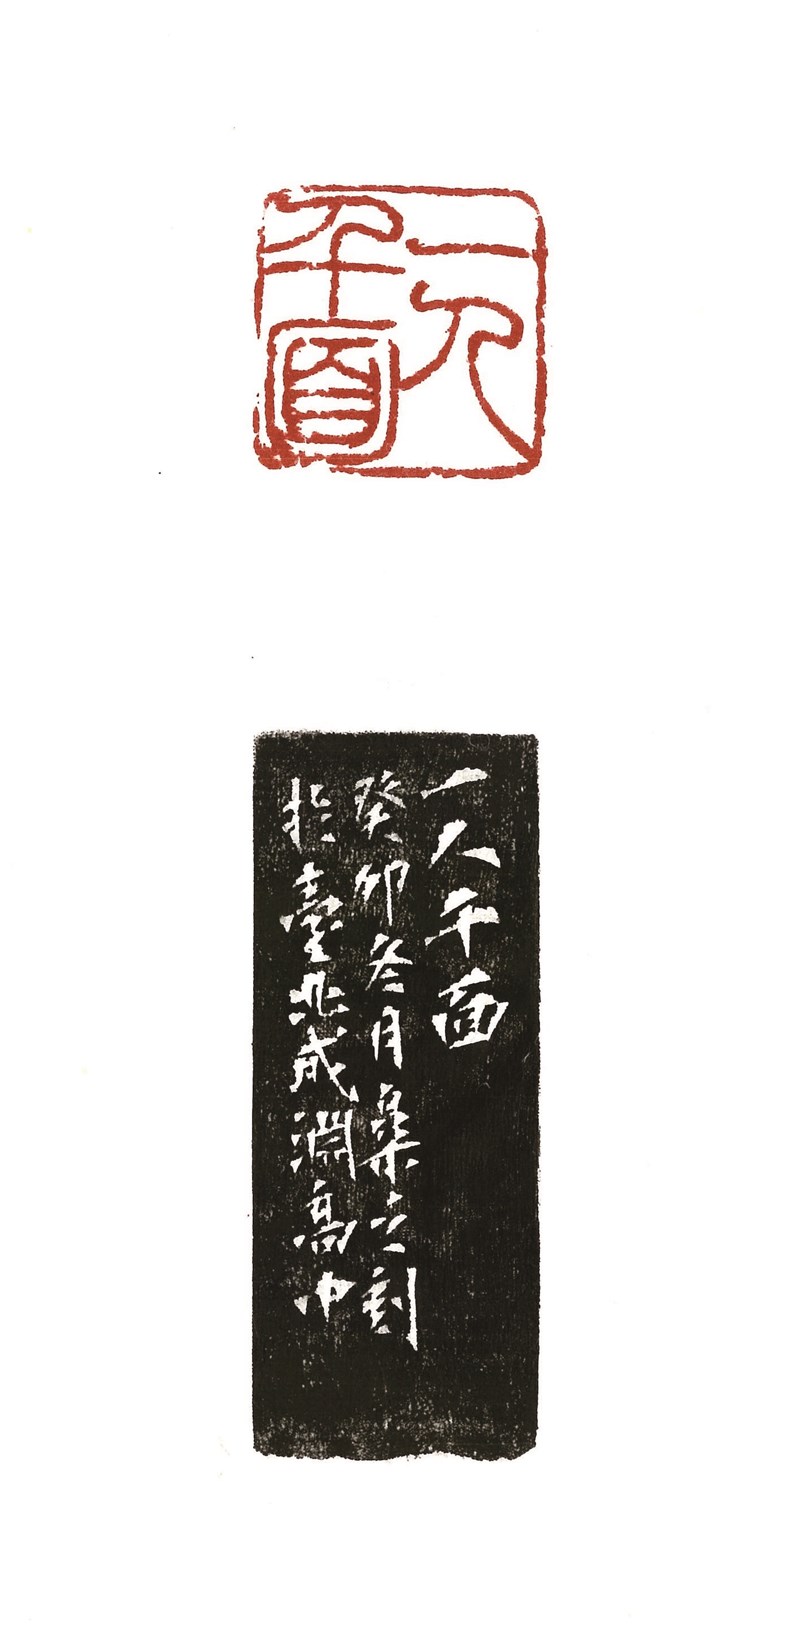 一人
千面
一人千面
癸卯冬月之刻
於臺北成淵高中